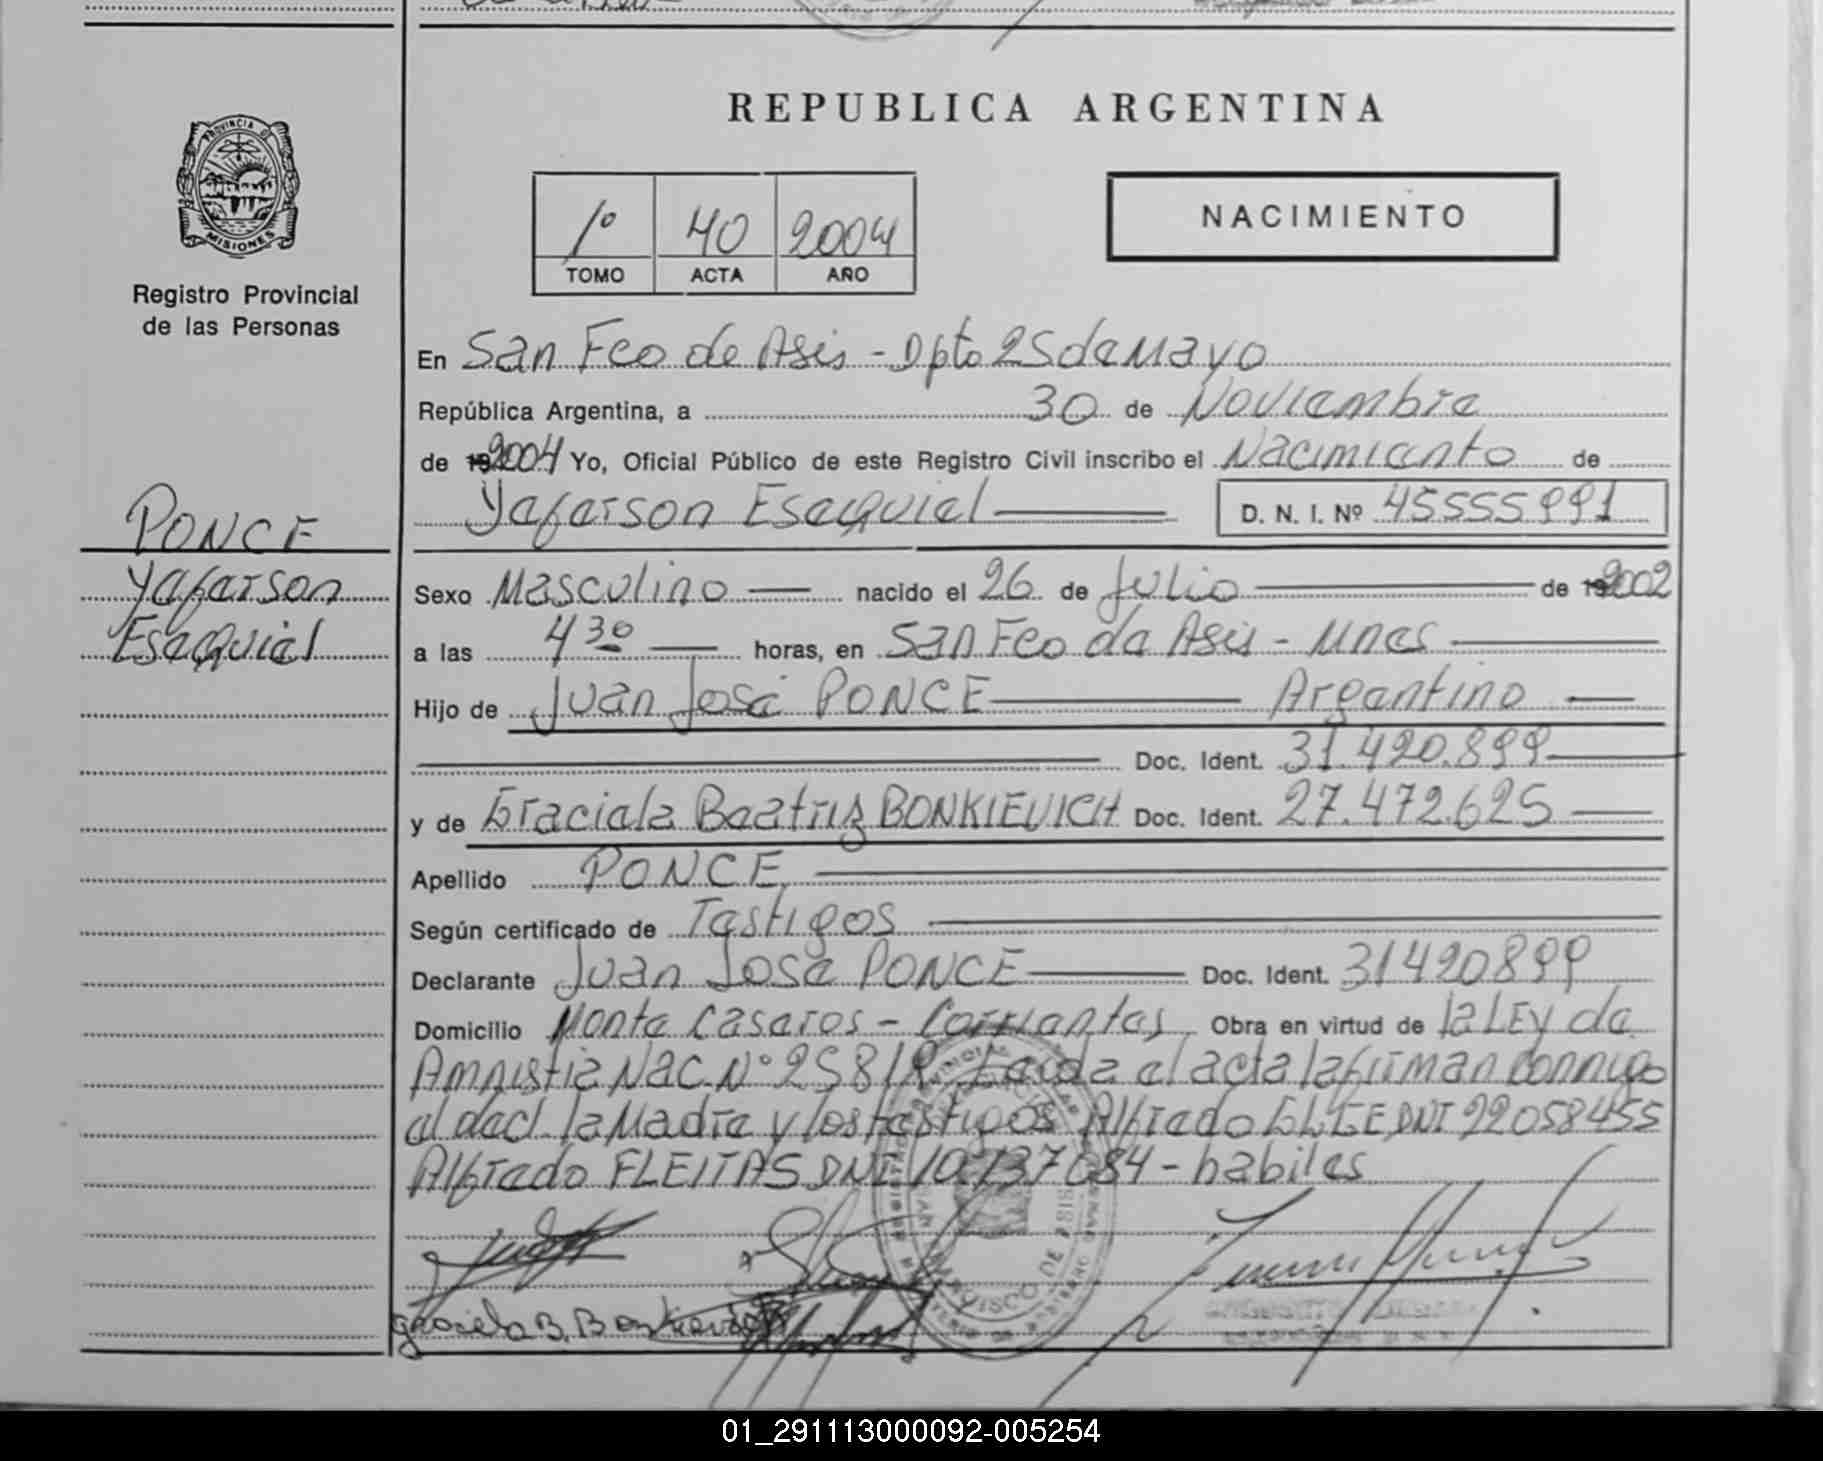 REPUBLICA ARGENTINA
PROVINCIA DE
MISIONES
Registro Provincial
de las Personas
1º 40 2004
TOMO ACTA AÑO
NACIMIENTO
En San Fco de Asis - Dpto 25 de Mayo
República Argentina, a 30 de Noviembre
de 192004 Yo, Oficial Público de este Registro Civil inscribo el Nacimiento de
Yeferson Esequiel D. N. I. Nº 45555991
PONCE
Yeferson
Esequiel
Sexo Masculino nacido el 26 de Julio de 192002
a las 4 30 horas, en San Fco de Asis - Mnes
Hijo de Juan José PONCE Argentino
Doc. Ident. 31.420.899
y de Graciela Beatriz BONKIEVICH Doc. Ident. 27.472.625
Apellido PONCE
Según certificado de Testigos
Declarante Juan José PONCE Doc. Ident. 31420899
Domicilio Monte Caseros - Corrientes Obra en virtud de la LEY de
Amnistia Nac. Nº 25819. Leida el acta la firman conmigo
el decl. la Madre y los testigos Alfredo DNI 22058455
Alfredo FLEITAS DNI 10.737684 - habiles
graciela B. Bonkievich
01_291113000092-005254